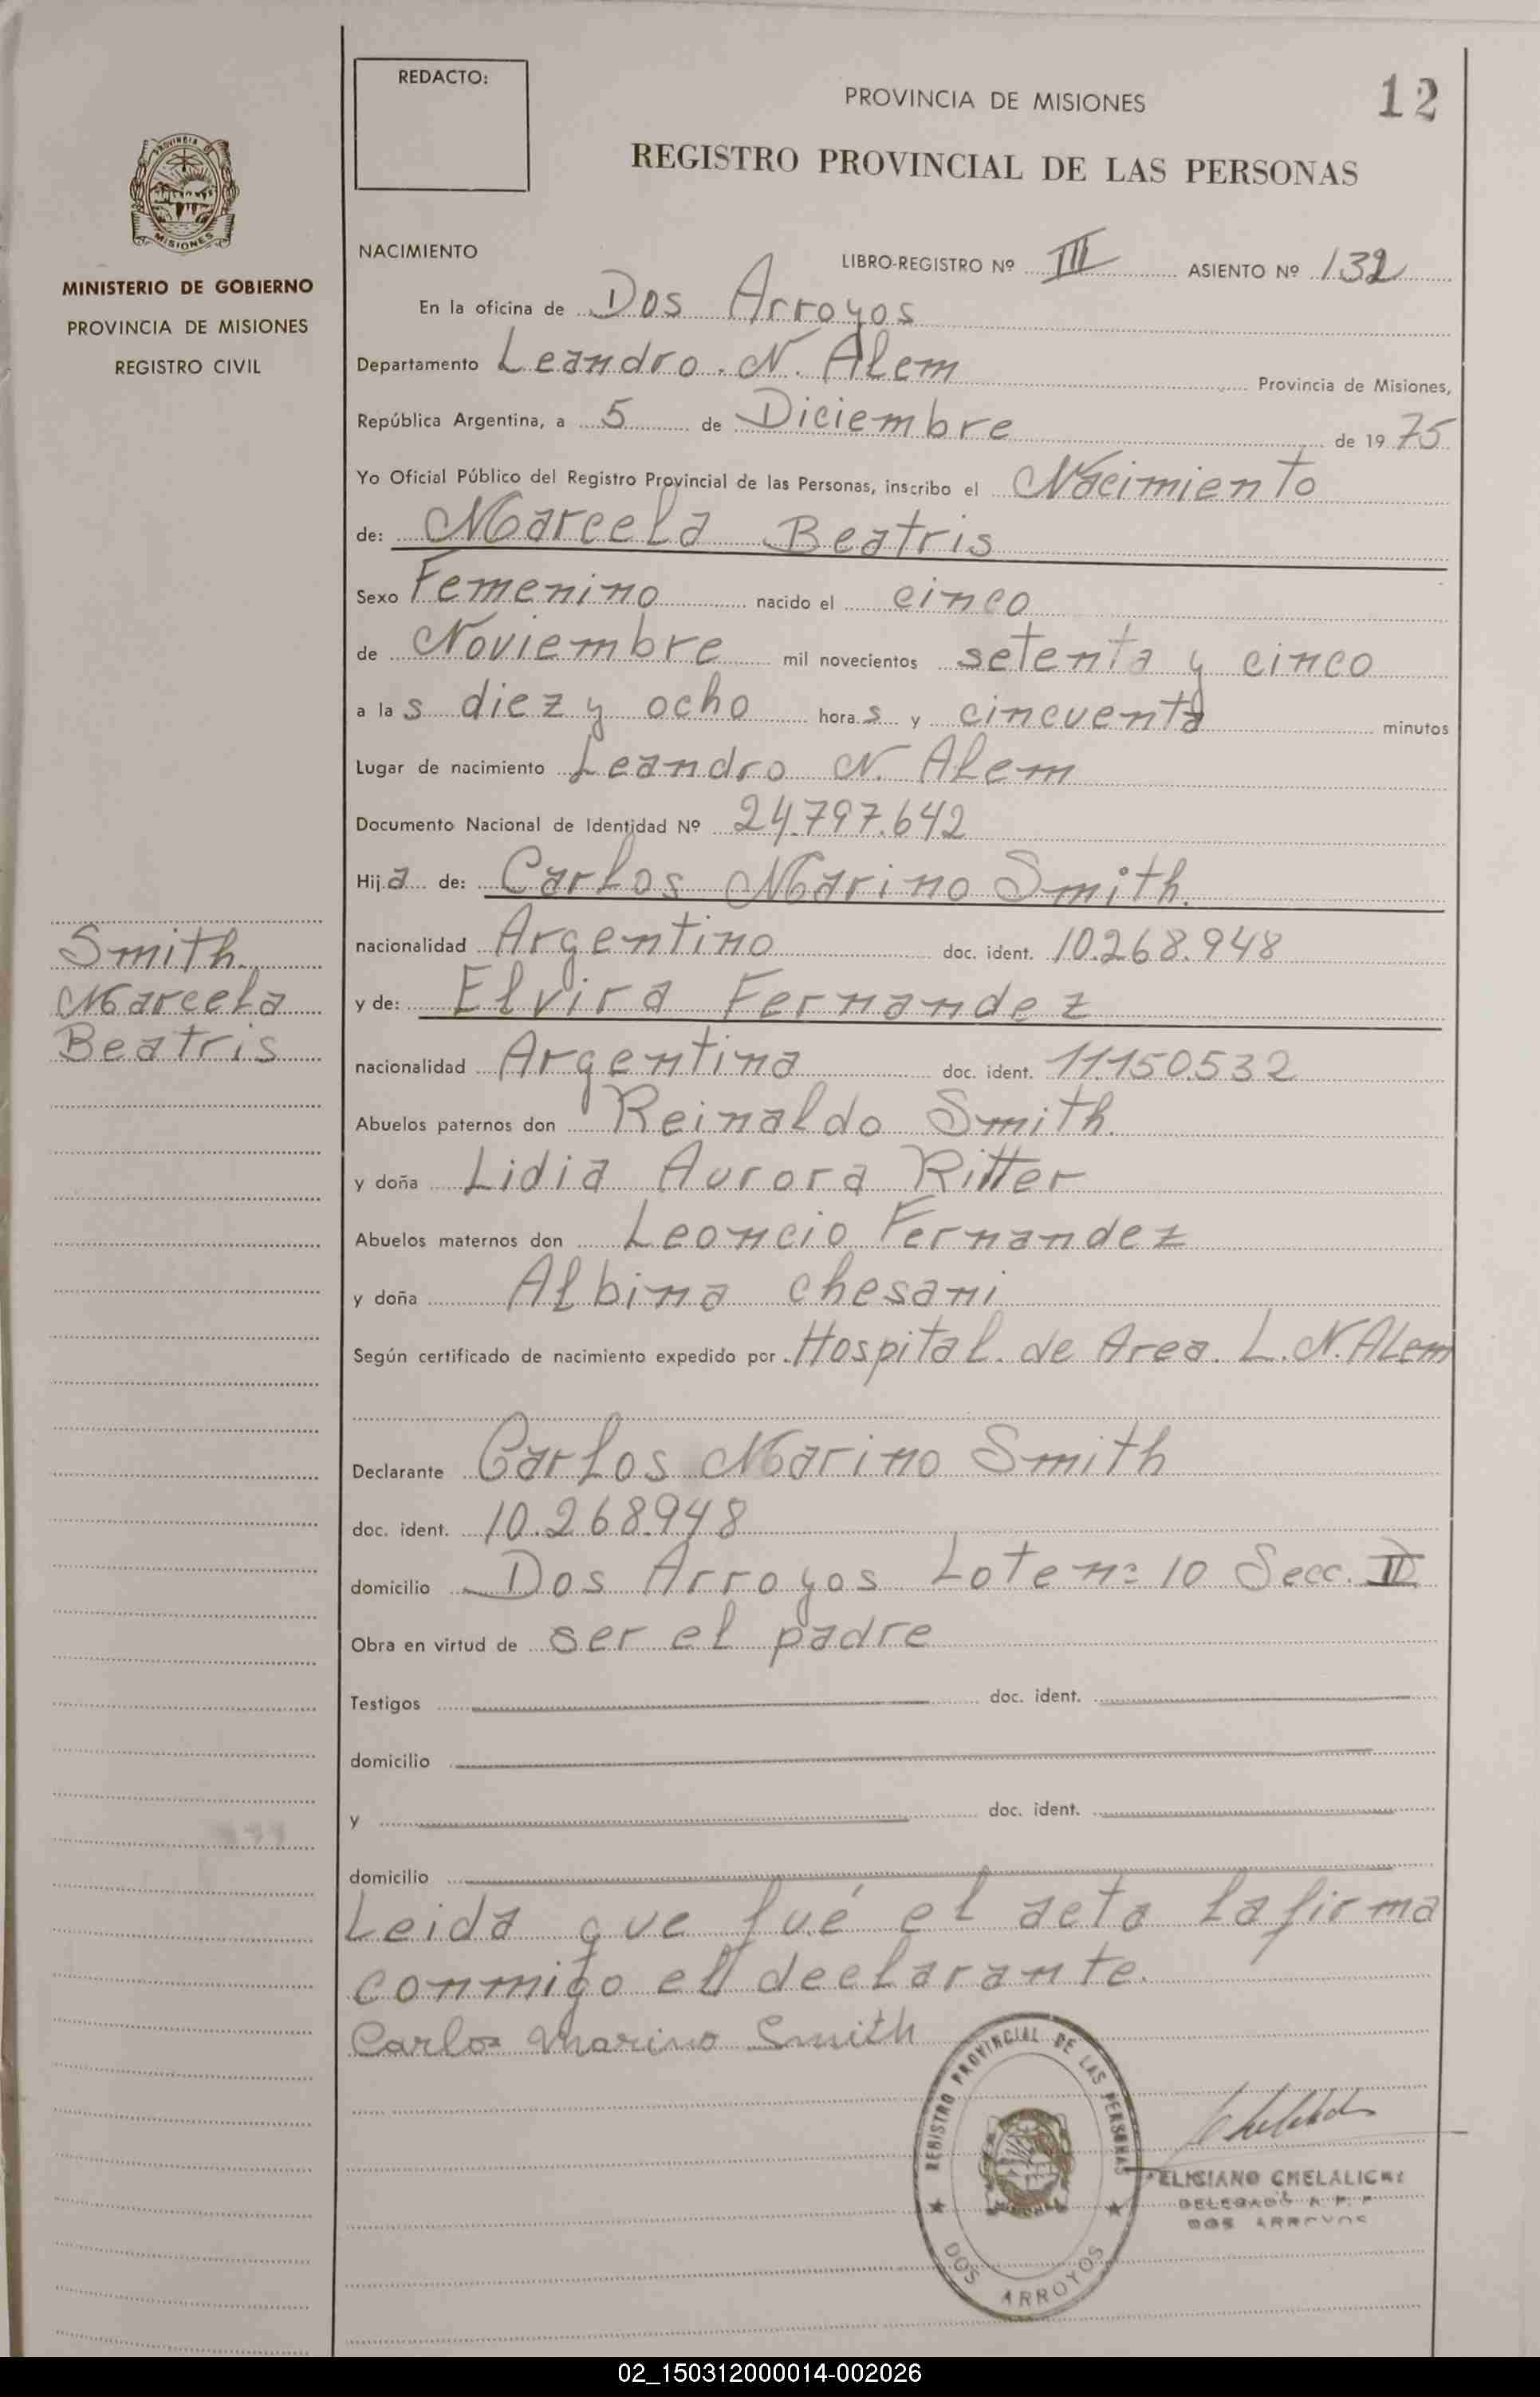 REDACTO:
PROVINCIA DE MISIONES
12
REGISTRO PROVINCIAL DE LAS PERSONAS
PROVINCIA
MISIONES
MINISTERIO DE GOBIERNO
PROVINCIA DE MISIONES
REGISTRO CIVIL
NACIMIENTO
LIBRO-REGISTRO Nº III ASIENTO Nº 132
En la oficina de Dos Arroyos
Departamento Leandro. N. Alem Provincia de Misiones,
República Argentina, a 5 de Diciembre de 1975
Yo Oficial Público del Registro Provincial de las Personas, inscribo el Nacimiento
de: Marcela Beatris
Sexo Femenino nacido el cinco
de Noviembre mil novecientos setenta y cinco
a las diez y ocho horas y cincuenta minutos
Lugar de nacimiento Leandro N. Alem
Documento Nacional de Identidad Nº 24.797.642
Hija de: Carlos Marino Smith.
nacionalidad Argentino doc. ident. 10.268.948
y de: Elvira Fernandez
nacionalidad Argentina doc. ident. 11.150.532
Abuelos paternos don Reinaldo Smith.
y doña Lidia Aurora Ritter
Abuelos maternos don Leoncio Fernandez
y doña Albina chesani
Según certificado de nacimiento expedido por Hospital. de Area. L. N. ALem
Declarante Carlos Marino Smith
doc. ident. 10.268.948
domicilio Dos Arroyos Lote nº 10 Secc. II
Obra en virtud de ser el padre
Testigos doc. ident.
domicilio
y doc. ident.
domicilio
Leida que fué el acta la firma
conmigo el declarante.
Carlos Marino Smith
Smith.
Marcela
Beatris
REGISTRO PROVINCIAL DE LAS PERSONAS
DOS ARROYOS
DELEGADO
DOS ARROYOS
02_150312000014-002026